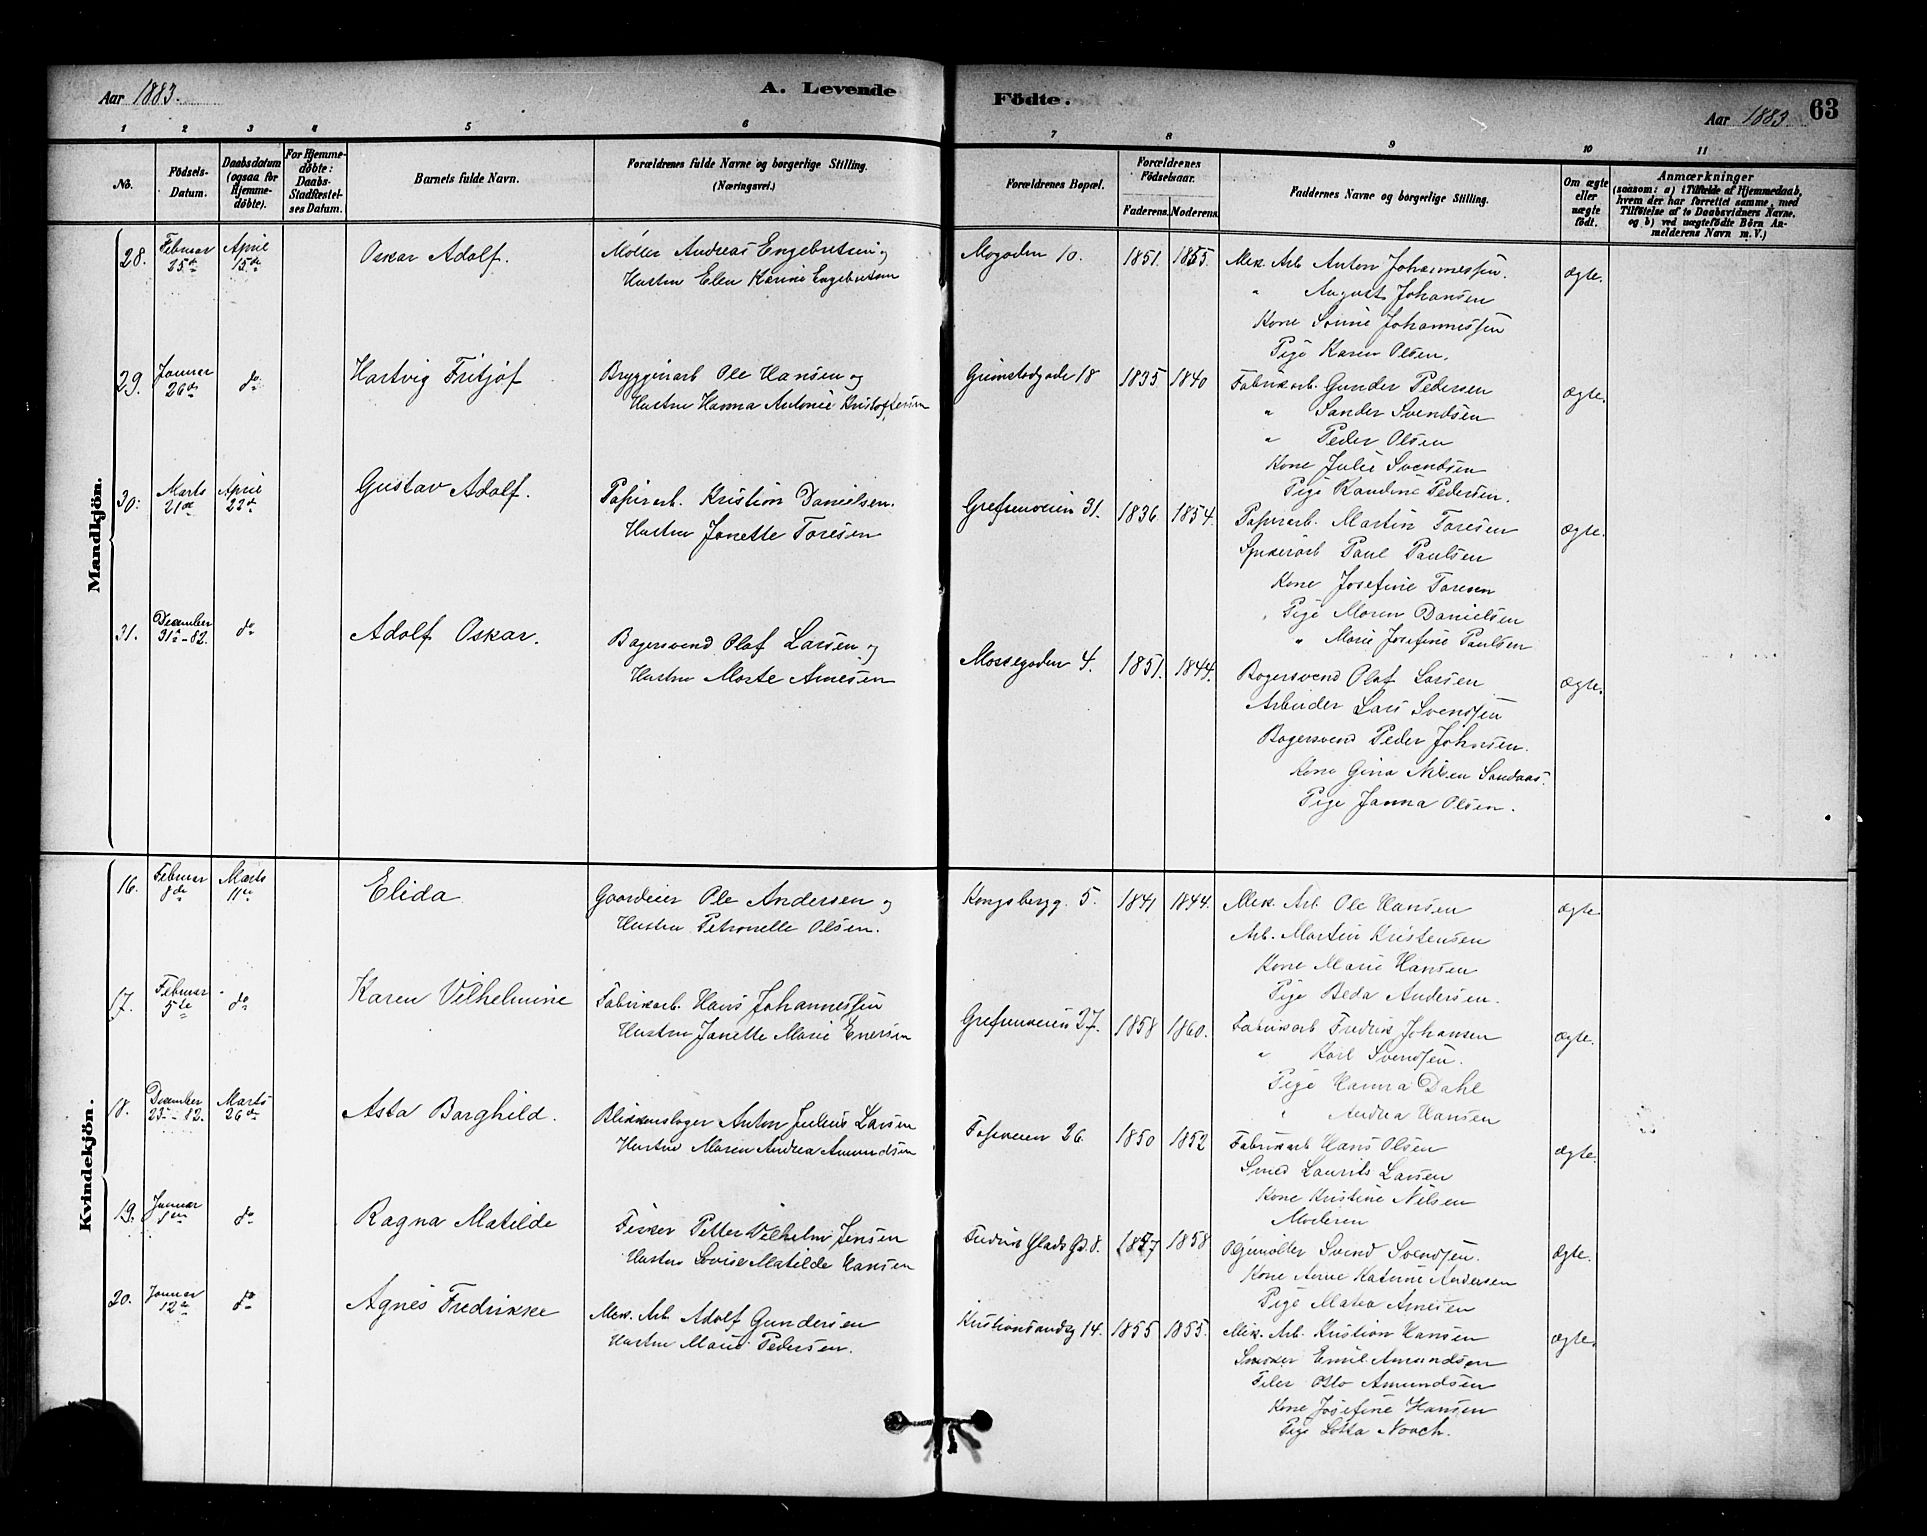 Aar 1883.
A. Levende
Födte.
Aar 1883. 63
1 2 3 4 5 6 7 8 9 10 11
No.
Födsels-
Datum.
Daabsdatum
(ogsaa for
Hjemme-
döbte).
For Hjemme-
döbte:
Daabs-
Stadfæstel-
ses Datum.
Barnets fulde Navn.
Forældrenes fulde Navne og borgerlige Stilling.
(Næringsvei.)
Forældrenes Bopæl.
Forældrenes
Födselsaar.
Faderens. Moderens.
Faddernes Navne og borgerlige Stilling.
Om ægte
eller
uægte
født.
Anmærkninger
(saasom: a) i Tilfælde af Hjemmedaab,
hvem der har forrettet samme, med
Tilföielse af to Daabsvidners Navne,
og b) ved uægtefödte Börn An-
melderens Navn m. V.)
Mandkjön.
28. Februar 15de April 15de Oskar Adolf. Møller Andreas Engebretsen og
Hustru Elen Karine Engebretsen
Mogaden 10. 1851. 1855. Mek. Arb. Anton Johannessen. ægte.
" August Johansen
Kone Johannessen
Pige Karen Olsen.
29. Januar 26de do Hartvig Fritjof Bryggeriarb Ole Hansen og
Hustru Hanna Antonie Kristoffersen
Grimstadgade 18 1835 1840 Fabrikarb. Gunder Pedersen ægte.
" Sander Svendsen
" Peder Olsen
Kone Julie Svendsen
Pige Randine Pedersen.
30. Marts 21de April 22de Gustav Adolf. Papirarb. Kristian Danielsen.
Hustru Janette Toresen
Grefsenveien 31. 1836 1854. Papirarb. Martin Toresen ægte.
Spikerarb Paul Paulsen
Kone Josefine Toresen
Pige Maren Danielsen
" Marie Josefine Paulsen
31. December 31te - 82. do Adolf Oskar. Bagersvend Olaf Larsen og
Hustru Marte Arnesen
Mossegaden 4. 1851. 1844. Bagersvend Olaf Larsen ægte.
Arbeider Lars Svendsen
Bagersvend Peder Johnsen.
Kone Gina Nilsen Sandaas.
Pige Janna Olsen.
Kvindekjön.
16. Februar 8de Marts 11te Elida Gaardeier Ole Andersen og
Hustru Petronelle Olsen.
Kongsbergg. 5. 1841 1844. Mek. Arb. Ole Hansen ægte
Arb. Martin Kristensen
Kone Marie Hansen
Pige Beda Andersen.
17. Februar 5te do Karen Vilhelmine Fabrikarb. Hans Johannessen
Hustru Janette Marie Enersen
Grefsenveien 27. 1858 1860. Fabrikarb Fredrik Johansen ægte.
" Karl Svendsen.
Pige Hanna Dahl
" Andrea Hansen
18. December 23de - 82. Marts 26de Asta Borghild. Blikkenslager Anton Julius Larsen
Hustru Maren Andrea Amundsen
Toftveien 26. 1850 1852 Fabrikarb Hans Olsen ægte.
Smed Laurits Larsen
Kone Kristine Nilsen
Moderen
19. Januar do Ragna Matilde Fisker Petter Vilhelm Jensen
Hustru Lovise Matilde Hansen
Fredrik Glads G. 8. 1857 1858 Oljemøller Svend Svendsen. ægte.
Kone Anne Katrine Andersen
Pige Matea Arnesen
20. Januar 12te do Agnes Fredrikke Mek. Arb. Adolf Gundersen
Hustru Marie Pedersen.
Kristiansandsg 14. 1855 1855. Mek. Arb. Kristian Hansen ægte.
Snekker Emil Amundsen
Filer Otto Amundsen
Kone Josefine Hansen
Pige Lotta Noach.